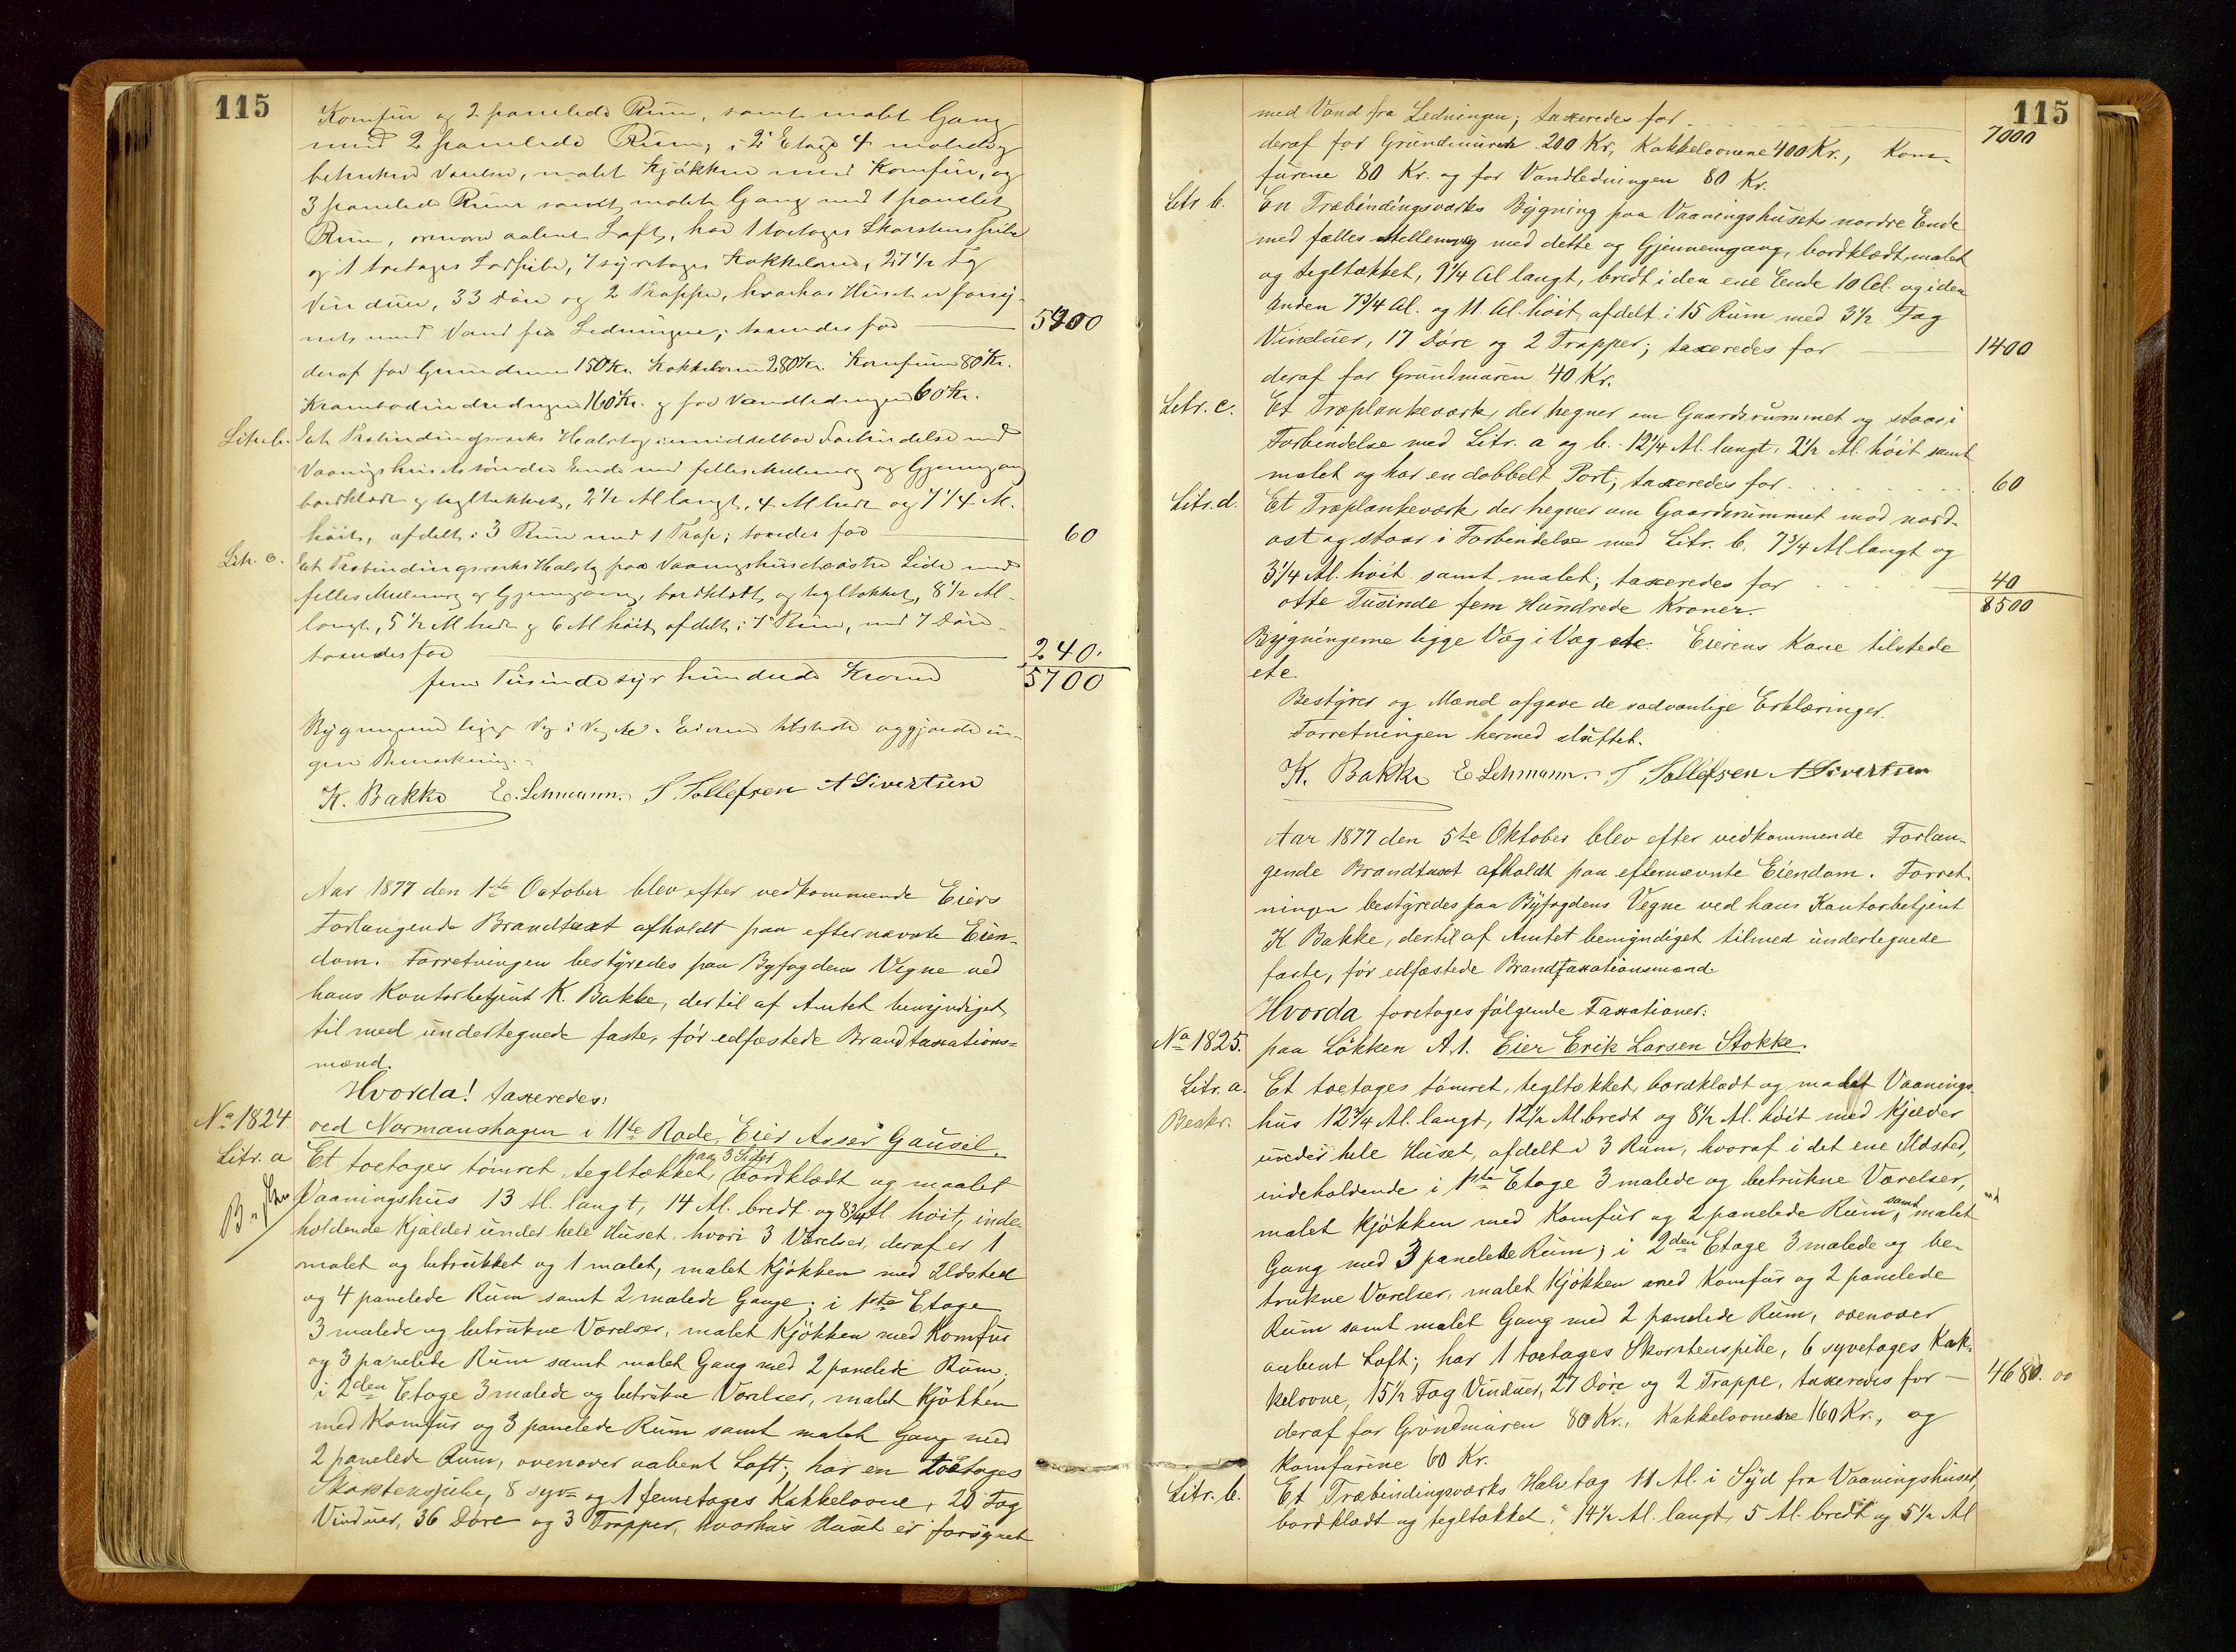 115
Komfur og 2 panelede Rum, samt malet Gang
med 2 panelede Rum, i 2 Etage 4 malede og
betrukne Værelser, malet Kjøkken med Komfur, og
3 panelede Rum samt malet Gang med 1 panelet
Rum, ovenover aabent Loft, har 1 toetages Skorstenspibe
og 1 toetages , 7 syvetages Kakkelovne, 27 1/2 Fag
Vinduer, 33 Døre og 2 Trapper, hvorhos Huset er forsy-
net med Vand fra Ledningen; taxeredes for 5400
deraf for Grundmuren 150 Kr. Kakkelovnene 280 Kr. Komfurene 80 Kr.
Krambodindredningen 160 Kr. og for Vandledningen 60 Kr.
Litr. b. Et Træbindingsværks Halvtag i umiddelbar Forbindelse med
Vaaningshusets søndre Ende med fælles Mellemvæg og Gjennemgang
bordklædt og tegltækket, 2 1/2 Al langt, 4 Al bredt og 7 1/4 Al.
høit, afdelt i 3 Rum med 1 Trap; taxeredes for 60
Litr. c. Et Træbindingsværks Halvtag paa Vaaningshusets østre Side med
fælles Mellemvæg og Gjennemgang, bordklædt og tegltækket, 8 1/2 Al
langt, 5 1/2 Al bredt og 6 Al høit, afdelt i 7 Rum, med 7 Døre
taxeredes for 240.
fem Tusinde syv hundrede Kroner 5700
Bygningerne ligge Væg i Væg etc. Eieren tilstede og gjorde in-
gen Bemærkning.
K. Bakke E. Lehmann. S. Tollefsen A Sivertsen
Aar 1877 den 1ste October blev efter vedkommende Eiers
Forlangende Brandtaxt afholdt paa efternævnte Eien-
dom. Forretningen bestyredes paa Byfogdens Vegne ved
hans Kontorbetjent K. Bakke, dertil af Amtet bemyndiget
til med undertegnede faste, før edfæstede Brandtaxations-
mænd.
Hvorda! taxeredes:
No 1824. ved Normanshagen i 11te Rode, Eier Asser Gausel.
Litr. a Et toetages tømret, tegltækket, paa 3 Sider bordklædt og maalet
Vaaningshus 13 Al. langt, 14 Al. bredt og 8 3/4 Al. høit, inde-
holdende Kjælder under hele Huset, hvori 3 Værelser, deraf er 1
malet og betrukket og 1 malet, malet Kjøkken med Ildsted
og 4 panelede Rum samt 2 malede Gange; i 1ste Etage
3 malede og betrukne Værelser, malet Kjøkken med Komfur
og 3 panelede Rum samt malet Gang med 2 panelede Rum;
i 2den Etage 3 malede og betrukne Værelser, malet Kjøkken
med Komfur og 3 panelede Rum samt malet Gang med
2 panelede Rum, ovenover aabent Loft; har en toetages
Skorstenspibe, 8 syv- og 1 femetages Kakkelovne, 20 Fag
Vinduer, 36 Døre og 3 Trapper, hvorhos Huset er forsynet
115
med Vand fra Ledningen; taxeredes for 7000
deraf for Grundmuren 200 Kr, Kakkelovnene 400 Kr., Kom-
furene 80 Kr. og for Vandledningen 80 Kr.
Litr. b. En Træbindingsværks Bygning paa Vaaningshusets nordre Ende
med fælles Mellemvæg med dette og Gjennemgang, bordklædt, malet
og tegltækket, 9 1/4 Al langt, bredt i den ene Ende 10 Al. og i den
Anden 7 3/4 Al. og 11 Al. høit, afdelt i 15 Rum med 3 1/2 Fag
Vinduer, 17 Døre og 2 Trapper; taxeredes for 1400
deraf for Grundmuren 40 Kr.
Litr. c. Et Træplankeværk, der hegner om Gaardsrummet og staar i
Forbindelse med Litr. a og b. 12 1/4 Al. langt, 2 1/2 Al. høit samt
malet og har en dobbelt Port; taxeredes for 60
Litr. d. Et Træplankeværk, der hegner om Gaardsrummet mod nord-
ost og staar i Forbindelse med Litr. b. 7 3/4 Al langt og
3 1/4 Al. høit samt malet; taxeredes for 40
otte Tusinde fem Hundrede Kroner. 8500
Bygningerne ligge Væg i Væg etc. Eierens Kone tilstede
etc.
Bestyrer og Mænd afgave de sædvanlige Erklæringer.
Forretningen hermed sluttet.
K. Bakke E Lehmann. S. Tollefsen A Sivertsen
Aar 1877 den 5te Oktober blev efter vedkommende Forlan-
gende Brandtaxt afholdt paa efternævnte Eiendom. Forret-
ningen bestyredes paa Byfogdens Vegne ved hans Kontorbetjent
K Bakke, dertil af Amtet bemyndiget tilmed undertegnede
faste, før edfæstede Brandtaxationsmænd.
Hvorda foretoges følgende Taxationer:
No 1825. paa Løkken A. 1. Eier Erik Larsen Stokke.
Litr. a. Et toetages tømret, tegltækket, bordklædt og malet Vaanings-
Beskr. hus 12 3/4 Al. langt, 12 1/2 Al. bredt og 8 1/2 Al. høit med Kjælder
under hele Huset, afdelt i 3 Rum, hvoraf i det ene Ildsted,
indeholdende i 1ste Etage 3 malede og betrukne Værelser,
malet Kjøkken med Komfur og 2 panelede Rum, samt malet
Gang med 3 panelede Rum; i 2den Etage 3 malede og be-
trukne Værelser, malet Kjøkken med Komfur og 2 panelede
Rum samt malet Gang med 2 panelede Rum, ovenover
aabent Loft; har 1 toetages Skorstenspibe, 6 syvetages Kak-
kelovne, 15 1/2 Fag Vinduer, 27 Døre og 2 Trappe, taxeredes for 4680.00
deraf for Grundmuren 80 Kr., Kakkelovnene 160 Kr., og
Komfurene 60 Kr.
Litr. b. Et Træbindingsværks Halvtag 11 Al. i Syd fra Vaaningshuset,
bordklædt og tegltækket, 14 1/2 Al. langt, 5 Al. bredt og 5 1/2 Al